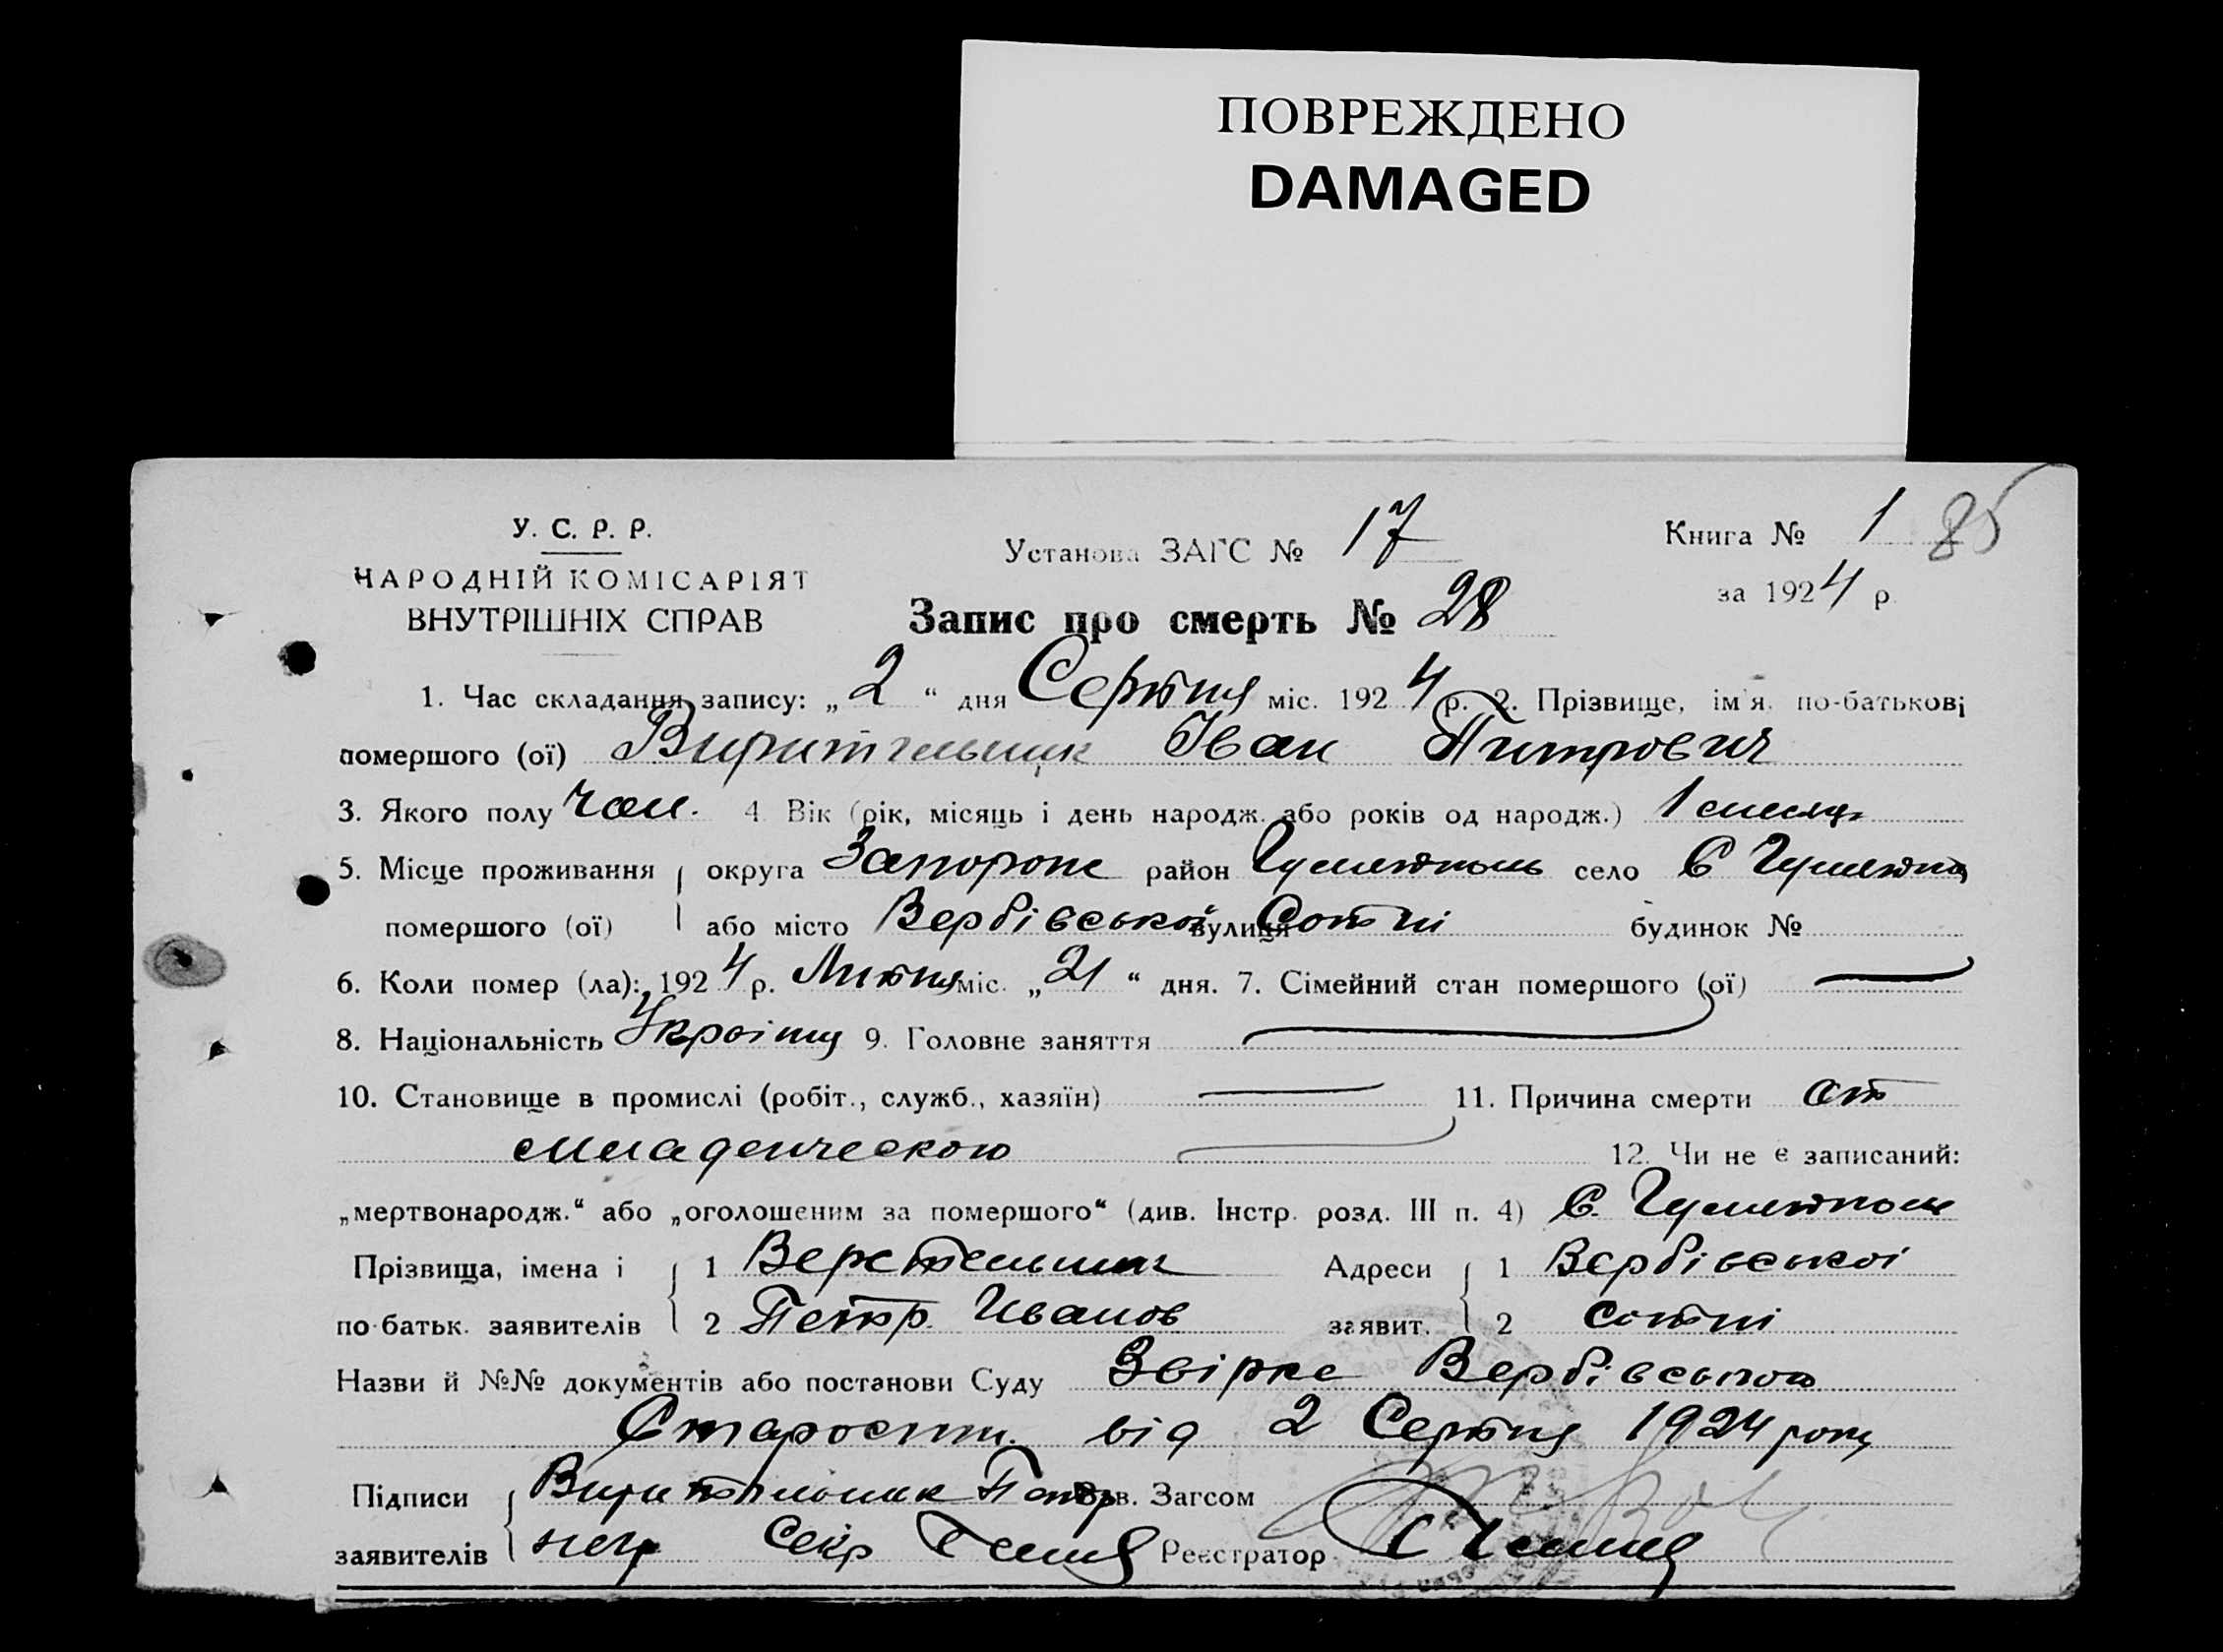 ПОВРЕЖДЕНО
DAMAGED
У. С. Р. Р.
НАРОДНІЙ КОМІСАРІЯТ
ВНУТРІШНІХ СПРАВ
Установа ЗАГС № 17
Книга № 1 85
за 1924 р.
Запис про смерть № 28
1. Час складання запису: „2“ дня Серпня міс. 1924 р. 2. Прізвище, ім'я, по-батькові
помершого (ої) Вирительник Іван Питрович
3. Якого полу Чол. 4. Вік (рік, місяць і день народж. або років од народж.) 1 месяць
5. Місце проживання округа Запорож район Гуляйполь село С Гуляйпо
помершого (ої) або місто Вербівської вулиця Сотні будинок №
6. Коли помер (ла): 1924 р. Липня міс. „21“ дня. 7. Сімейний стан помершого (ої) —
8. Національність Україну 9. Головне заняття —
10. Становище в промислі (робіт., служб., хазяїн) — 11. Причина смерти от
младенческою — 12. Чи не є записаний:
„мертвонародж.“ або „оголошеним за помершого“ (див. Інстр. розд. III п. 4) С. Гуляйполе
Прізвища, імена і 1 Верстельник Адреси 1 Вербівської
по-батьк. заявителів 2 Петр Иванов заявит. 2 Сотні
Назви й №№ документів або постанови Суду Звірке Вербівською
Старости від 2 Серпня 1924 року
Підписи Вирительник Петр Зав. Загсом
заявителів Секр Реєстратор